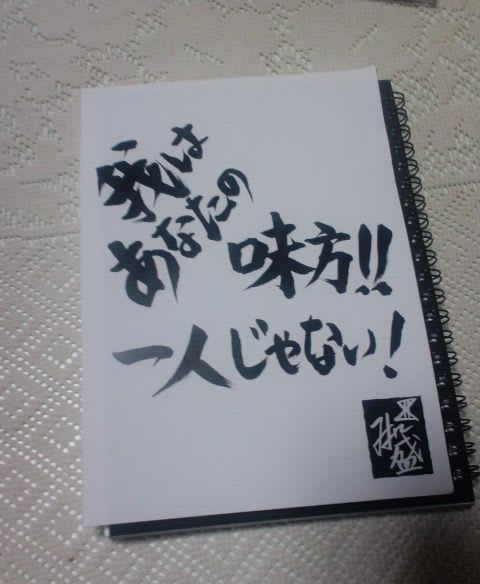 我は
あなたの
味方!!
一人じゃない!